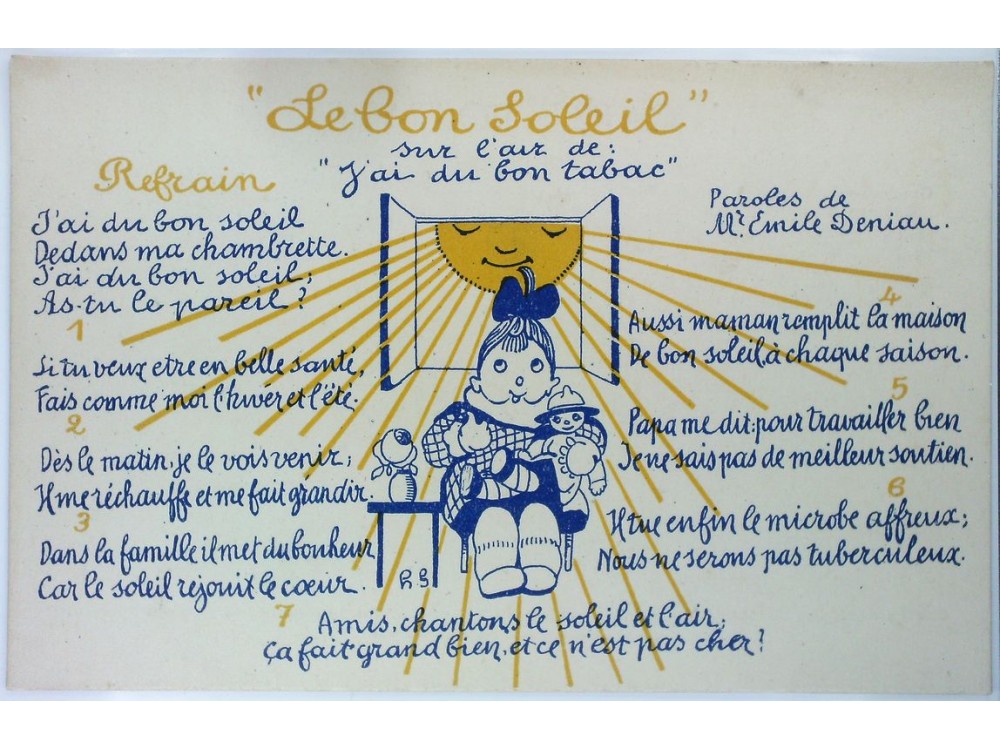 "Le bon Soleil"
sur l'air de:
"J'ai du bon tabac"
Paroles de
Mr. Emile Deniau.
Refrain
J'ai du bon soleil
Dedans ma chambrette.
J'ai du bon soleil;
As-tu le pareil?
1
Si tu veux etre en belle santé,
Fais comme moi l'hiver et l'été.
2
Dès le matin, je le vois venir;
Il me réchauffe et me fait grandir.
3
Dans la famille il met du bonheur
Car le soleil réjouit le cœur.
4
Aussi maman remplit la maison
De bon soleil, à chaque saison.
5
Papa me dit: pour travailler bien
Je ne sais pas de meilleur soutien.
6
Il tue enfin le microbe affreux;
Nous ne serons pas tuberculeux.
7
Amis, chantons le soleil et l'air;
Ça fait grand bien, et ce n'est pas cher!